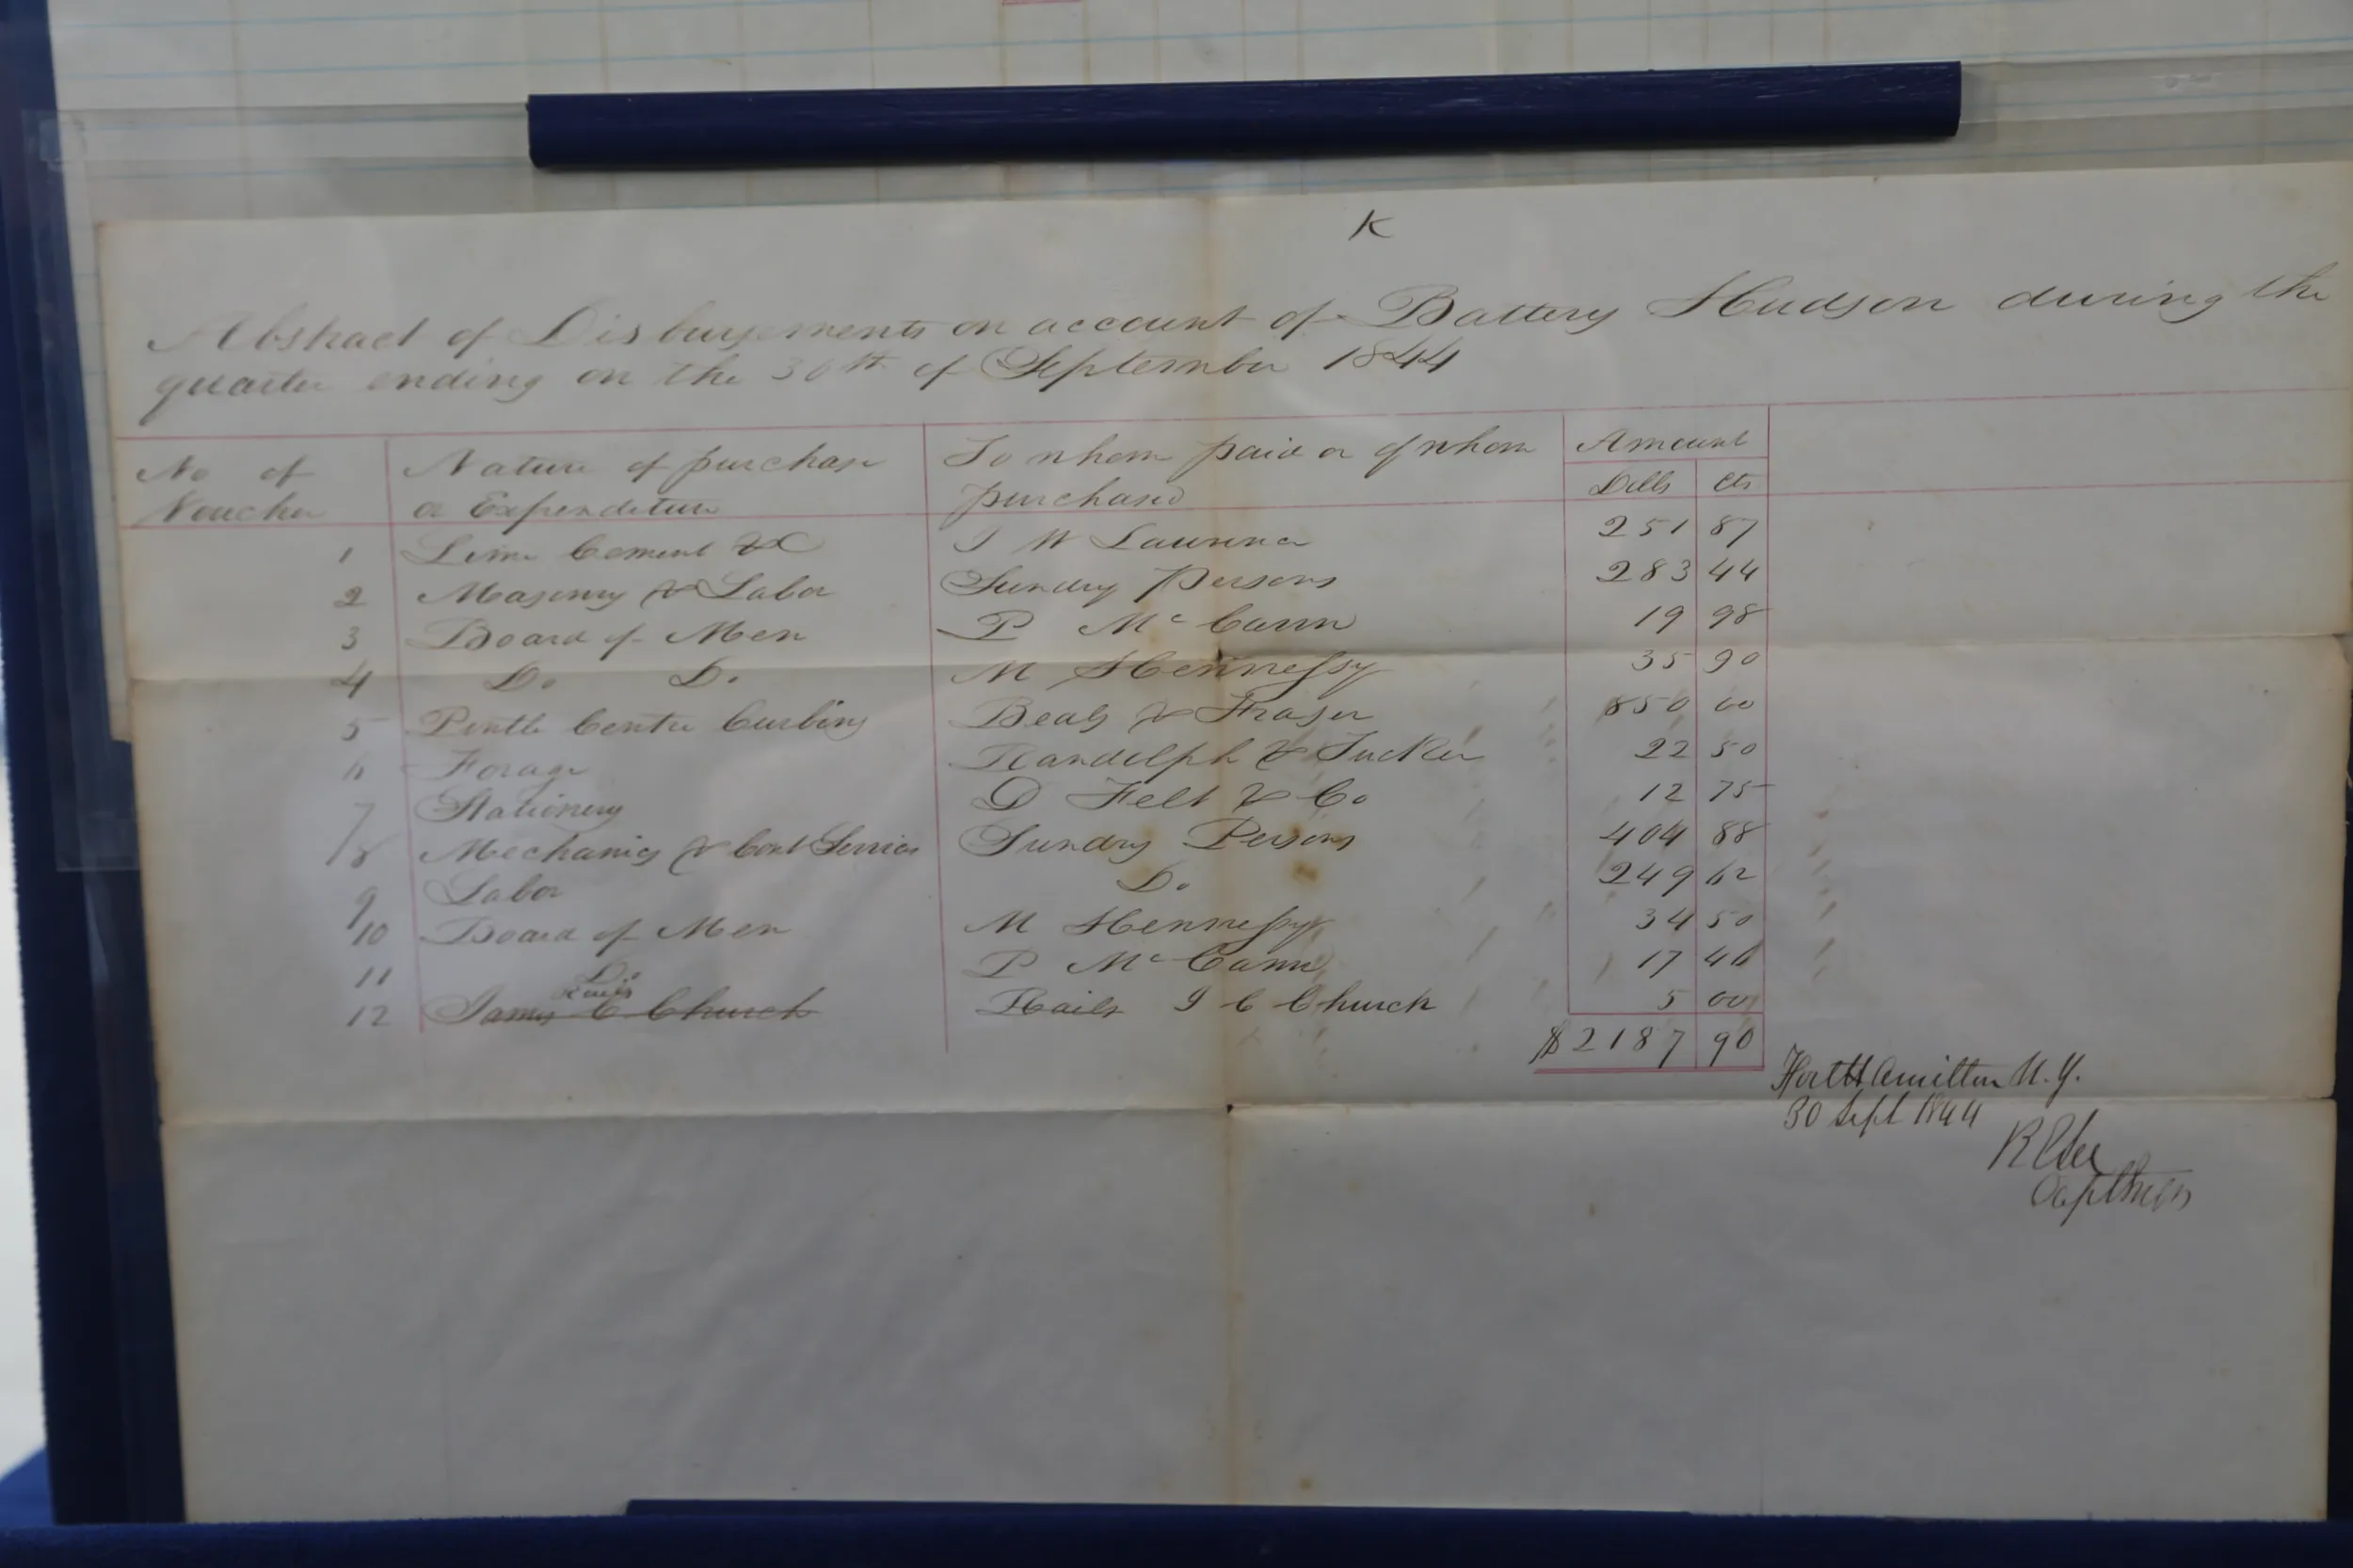 K
Abstract of Disbursements on account of Battery Hudson during the
quarter ending on the 30th of September 1844
No of Voucher Nature of purchase or Expenditure To whom paid or of whom purchased Amount Dolls Cts
1 Lime Cement &C J W Lawrence 251 87
2 Masonry & Labor Sundry Persons 283 44
3 Board of Men P McCann 19 98
4 Do Do M Hennessy 35 90
5 Pintle Centre Curbing Beals & Fraser 850 00
6 Forage Randolph & Tucker 22 50
7 Stationery D Felt & Co 12 75
8 Mechanics & Cont Services Sundry Persons 404 88
9 Labor Do 249 62
10 Board of Men M Hennessy 34 50
11 Do P McCann 17 46
Rails
12 James C Church Rails J C Church 5 00
$2187 90
Fort Hamilton N.Y.
30 Sept 1844
R E Lee
Capt Engrs